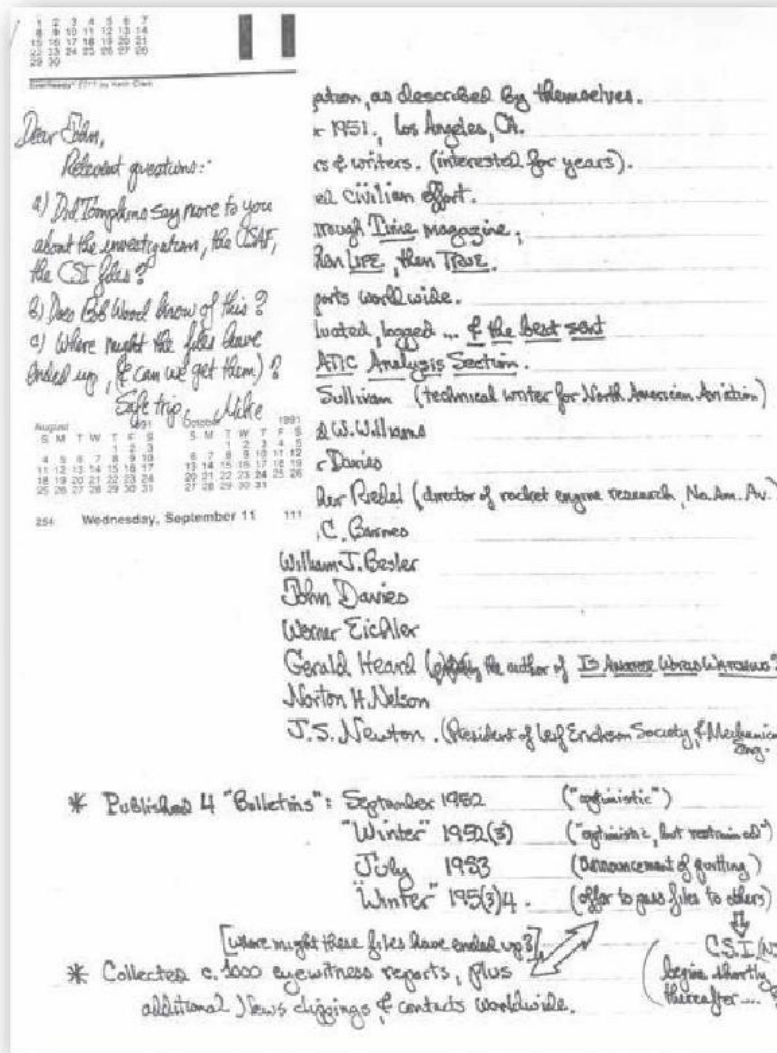 1 2 3 4 5 6 7
8 9 10 11 12 13 14
15 16 17 18 19 20 21
22 23 24 25 26 27 28
29 30
11
Dear John,
Relevant questions:
a) Did Tompkins say more to you
about the investigation, the USAF,
the CSI files?
b) Does Bob Wood know of this?
c) Where might the files have
ended up, (& can we get them)?
Safe trip, Mike
August 1991
S M T W T F S
1 2 3
4 5 6 7 8 9 10
11 12 13 14 15 16 17
18 19 20 21 22 23 24
25 26 27 28 29 30 31
October 1991
S M T W T F S
1 2 3 4 5
6 7 8 9 10 11 12
13 14 15 16 17 18 19
20 21 22 23 24 25 26
27 28 29 30 31
254 Wednesday, September 11 111
ation, as described by themselves.
1951, Los Angeles, CA.
rs & writers. (interested for years).
civilian effort.
rough Time magazine,
then LIFE, then TRUE.
ports worldwide.
luated, logged ... & the best sent
ATIC Analysis Section.
Sullivan (technical writer for North American Aviation)
W. Williams
Davies
Riedel (director of rocket engine research, No. Am. Av.)
C. Barnes
William J. Besler
John Davies
Werner Eichler
Gerald Heard (the author of Is Another World Watching?
Norton H. Nelson
J.S. Newton. (President of Leif Erickson Society & Mechanical
Eng.
* Published 4 "Bulletins": September 1952 ("optimistic")
"Winter" 1952(3) ("optimistic, but restrained")
July 1953 (Announcement of quitting)
"Winter" 195(3)4. (offer to pass files to others)
[where might these files have ended up?]
* Collected c. 1000 eyewitness reports, plus
additional News clippings & contacts worldwide.
C.S.I. (N
(begins shortly
thereafter ...